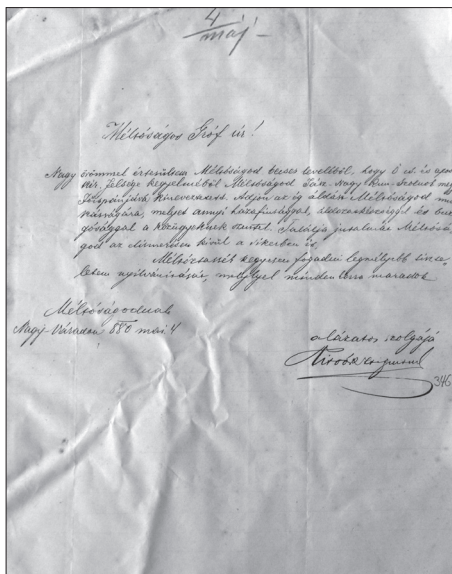 4
máj
Méltóságos Gróf úr!
Nagy örömmel értesültem Méltóságod becses leveléből, hogy Ő cs. és
kir. felsége kegyelméből Méltóságod Jász Nagy Kun Szolnok
Főispánjává kineveztetett. Adjon az ég áldást Méltóságod
melyet annyi hazafisággal,
a közügyeknek szentel. Találja jutalmát
god az elismerésen kívül a sikerben is,
Méltóztassék kegyesen fogadni legmélyebb
letem nyilvánítását, melylyel minden maradok
Méltóságodnak
Nagy-Váradon 880 mai 4
alázatos szolgája
346